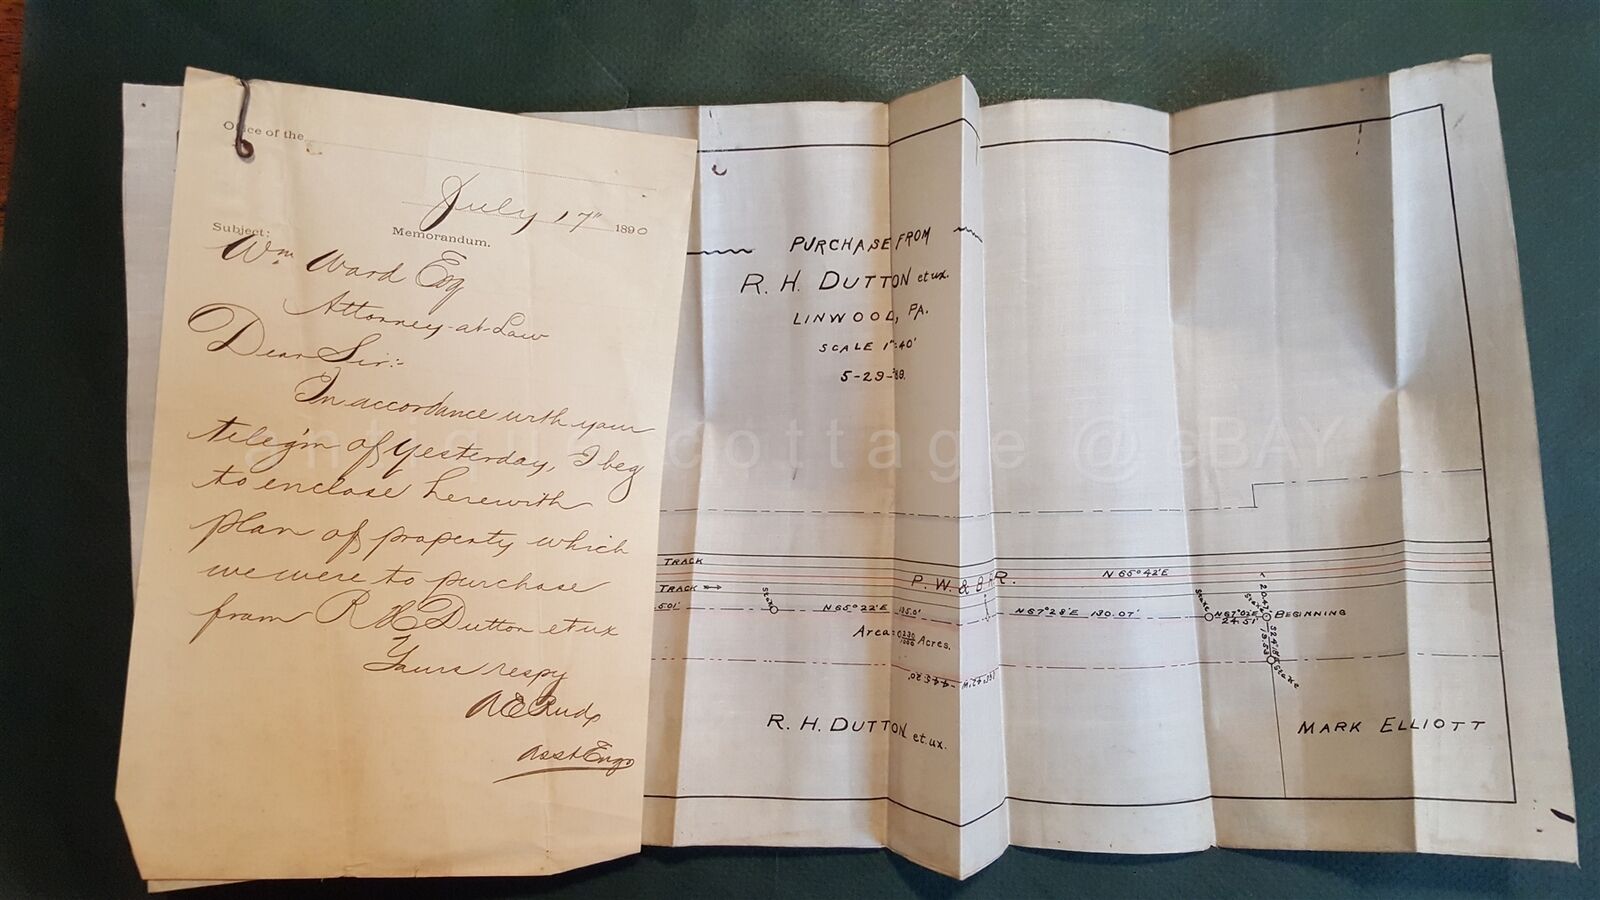 Office of the
July 17" 1890
Subject:
Memorandum.
Wm Ward Esq
Attorney-at-Law
Dear Sir:-
In accordance with your
telegm of yesterday, I beg
to enclose herewith
plan of property which
we were to purchase
from R H Dutton et ux
Yours respy
Asst Engr
PURCHASE FROM
R. H. DUTTON et ux.
LINWOOD, PA.
SCALE 1"=40'
5-29-'88.
antique cottage @ eBAY
TRACK
P. W. & B R.R.
N 65° 42' E
TRACK
Stake
N 65° 22' E
N 67° 28' E 130.07'
Stake
N 67° 02' E
24.51'
Stake
BEGINNING
Stake
Area= Acres.
R. H. DUTTON et.ux.
MARK ELLIOTT